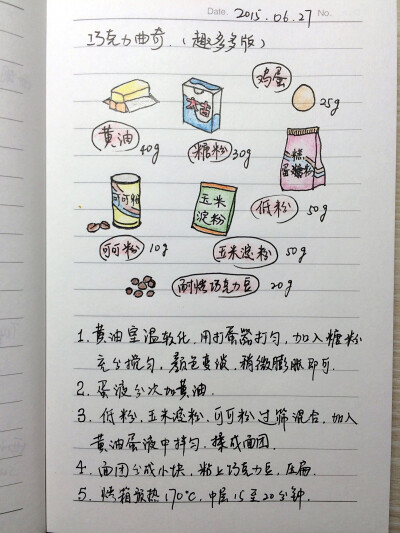 Date. 2015.06.27 No.
巧克力曲奇.(趣多多版)
鸡蛋
25g
太古
黄油
40g
糖粉
30g
蛋糕粉
可可粉
玉米
淀粉
低粉
50g
可可粉
10g
玉米淀粉
50g
耐烘巧克力豆
20g
1. 黄油室温软化,用打蛋器打匀,加入糖粉
充分搅匀,颜色变淡,稍微膨胀即可.
2. 蛋液分次加黄油.
3. 低粉,玉米淀粉,可可粉过筛混合,加入
黄油蛋液中拌匀,揉成面团.
4. 面团分成小块,粘上巧克力豆,压扁.
5. 烤箱预热170℃,中层15至20分钟.